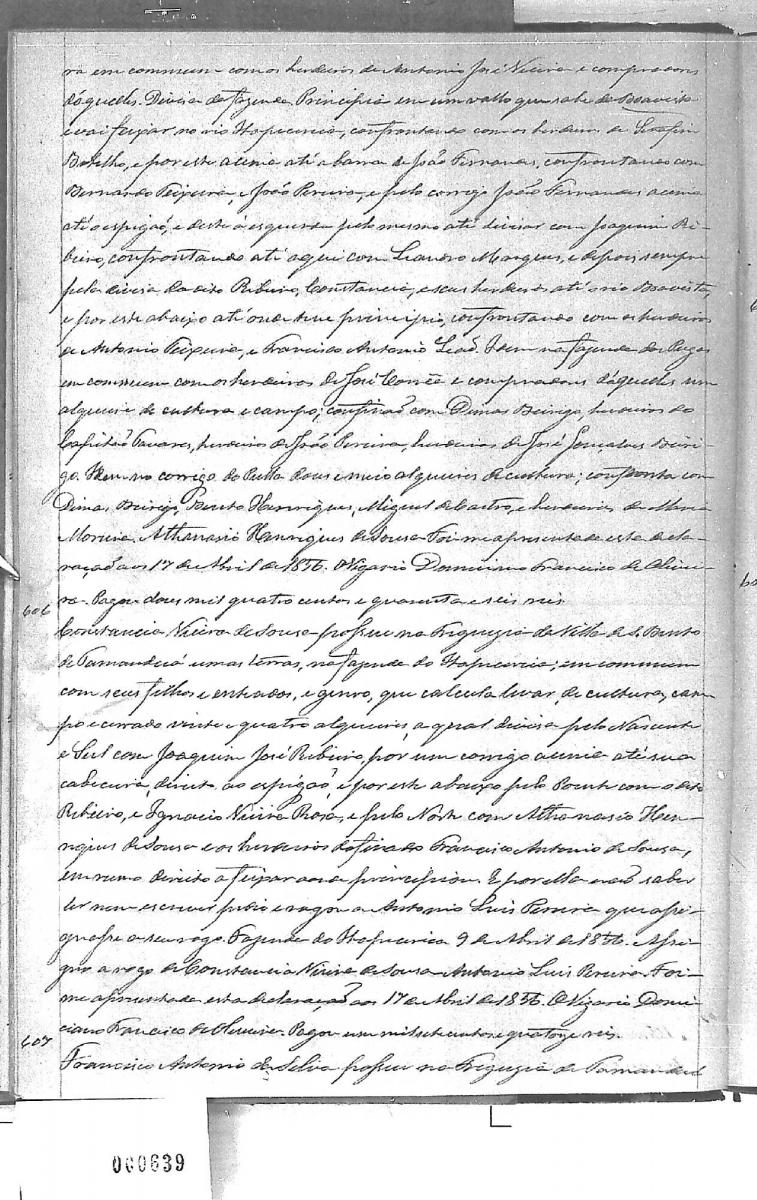 ra em commum com os herdeiros de Antonio José Vieira e compradores
dáquelles. Divisa da fazenda Principia em um vallo que sahe do Boavista
e vai feixar no rio Itapicirica, confrontando com os herdeiros de Serafim
Botelho, e por este acima até a barra de João Fernandes, confrontando com
Bernardo Teixeira, e João Pereira, e pelo corrego João Fernandes acima
até o espigaõ, e deste á esquerda pelo mesmo até divisar com Joaquim Ri-
beiro, confrontando até aqui com Leandro Marques, e depois sempre
pela divisa do dito Ribeiro, Constancia, e seus herdeiros até o rio Boavista,
e por este abaixo até onde teve principio, confrontando com os herdeiros
de Antonio Teixeira, e Francisco Antonio Leaõ. Idem na fazenda dos
em commum com os herdeiros de José Corrêa e compradores dáquelles um
alqueire de cultura e campo; confinaõ com Dimas Beirigo, herdeiros do
Capitaõ Tavares, herdeiros de João Pereira, herdeiros de José Gonçalves Beiri-
go. Idem no corrego do dous e meio alqueires de cultura; confronta com
Dimas Beirigo, Bento Henriques, Miguel de Castro, e herdeiros de Maria
Moreira. Athanasio Henriques de Sousa Foi me apresentada esta decla-
raçaõ aos 17 de Abril de 1856. O Vigario Domiciano Francisco de Olivei-
ra. Pagou dous mil quatro centos e quarenta e seis reis
606
Constancia Vieira de Sousa possue na Freguezia da Villa de S. Bento
do Tamanduá umas terras, na fazenda do Itapicirica; em commum
com seus filhos e entiados, e genro, que calcula levar, de cultura, cam-
po e cerrado vinte e quatro alqueires, a qual divisa pelo Nascente
e Sul com Joaquim José Ribeiro, por um corrego acima até sua
cabeceira, direito ao espigaõ, e por este abaixo pelo Poente com o dito
Ribeiro, e Ignacio Vieira Rosa, e pelo Norte com Athanasio Hen-
riques de Sousa e os herdeiros do finado Francisco Antonio de Sousa,
em rumo direito a feixar aonde principiou. E por ella naõ saber
ler nem escrever pedio e rogou a Antonio Luis Pereira que assi-
gnasse a seu rogo. Fazenda do Itapicirica 9 de Abril de 1856. Assi-
gno a rogo de Constancia Vieira de Sousa Antonio Luis Pereira Foi-
me apresentada esta declaraçaõ aos 17 de Abril de 1856. O Vigario Domi-
ciano Francisco de Oliveira. Pagou um mil sete centos e quatorze reis.
607
Francisco Antonio da Silva possue na Freguezia de Tamanduá
000639